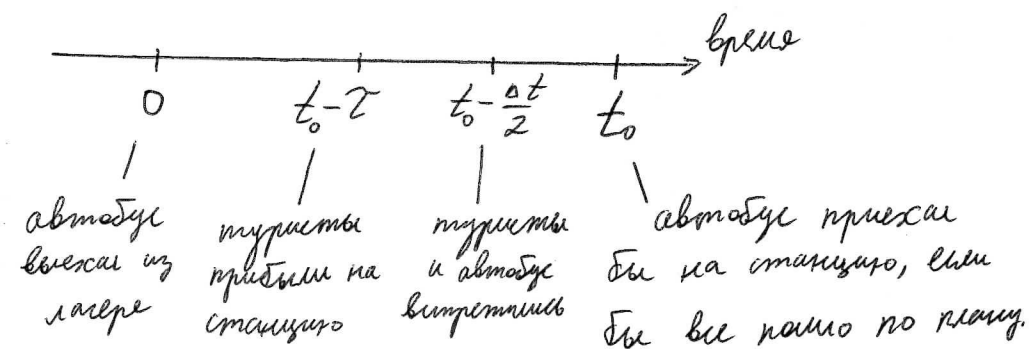 время
0 t₀-τ t₀-Δt/2 t₀
автобус выехал из лагеря
туристы прибыли на станцию
туристы и автобус встретились
автобус приехал бы на станцию, если бы все пошло по плану.